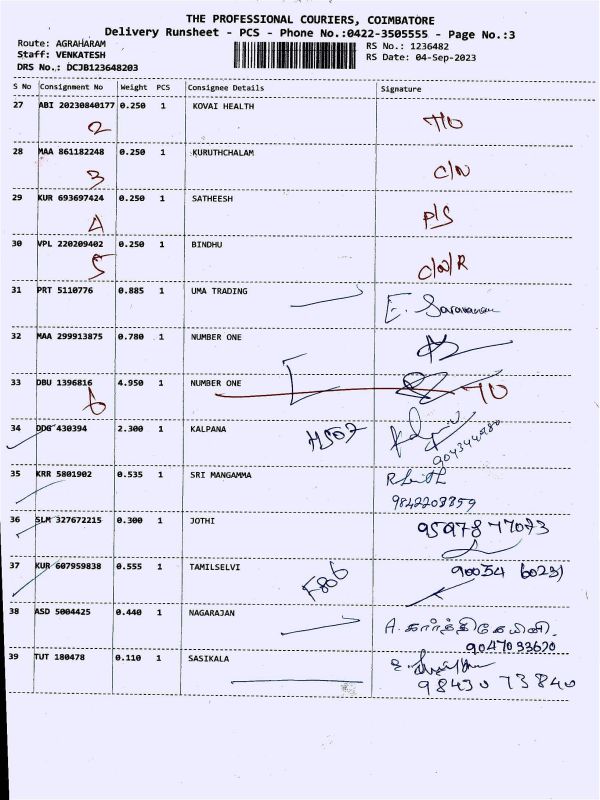 THE PROFESSIONAL COURIERS, COIMBATORE
Delivery Runsheet - PCS - Phone No.:0422-3505555 - Page No.:3
Route: AGRAHARAM RS No.: 1236482
Staff: VENKATESH RS Date: 04-Sep-2023
DRS No.: DCJB123648203
S No Consignment No Weight PCS Consignee Details Signature
27 ABI 20230840177 0.250 1 KOVAI HEALTH
2 T/O
28 MAA 861182248 0.250 1 KURUTHCHALAM
3 C/N
29 KUR 693697424 0.250 1 SATHEESH
4 P/S
30 VPL 220209402 0.250 1 BINDHU
5 C/N/R
31 PRT 5110776 0.885 1 UMA TRADING
E. Saravanan
32 MAA 299913875 0.780 1 NUMBER ONE
33 DBU 1396816 4.950 1 NUMBER ONE
6 T/O
34 DDG 430394 2.300 1 KALPANA
H507
35 KRR 5801902 0.535 1 SRI MANGAMMA
9842203859
36 SLM 327672215 0.300 1 JOTHI
9597877073
37 KUR 607959838 0.555 1 TAMILSELVI
F806 90054 60231
38 ASD 5004425 0.440 1 NAGARAJAN
A. கார்த்திகேயினி.
9047093620
39 TUT 180478 0.110 1 SASIKALA
98430 73840